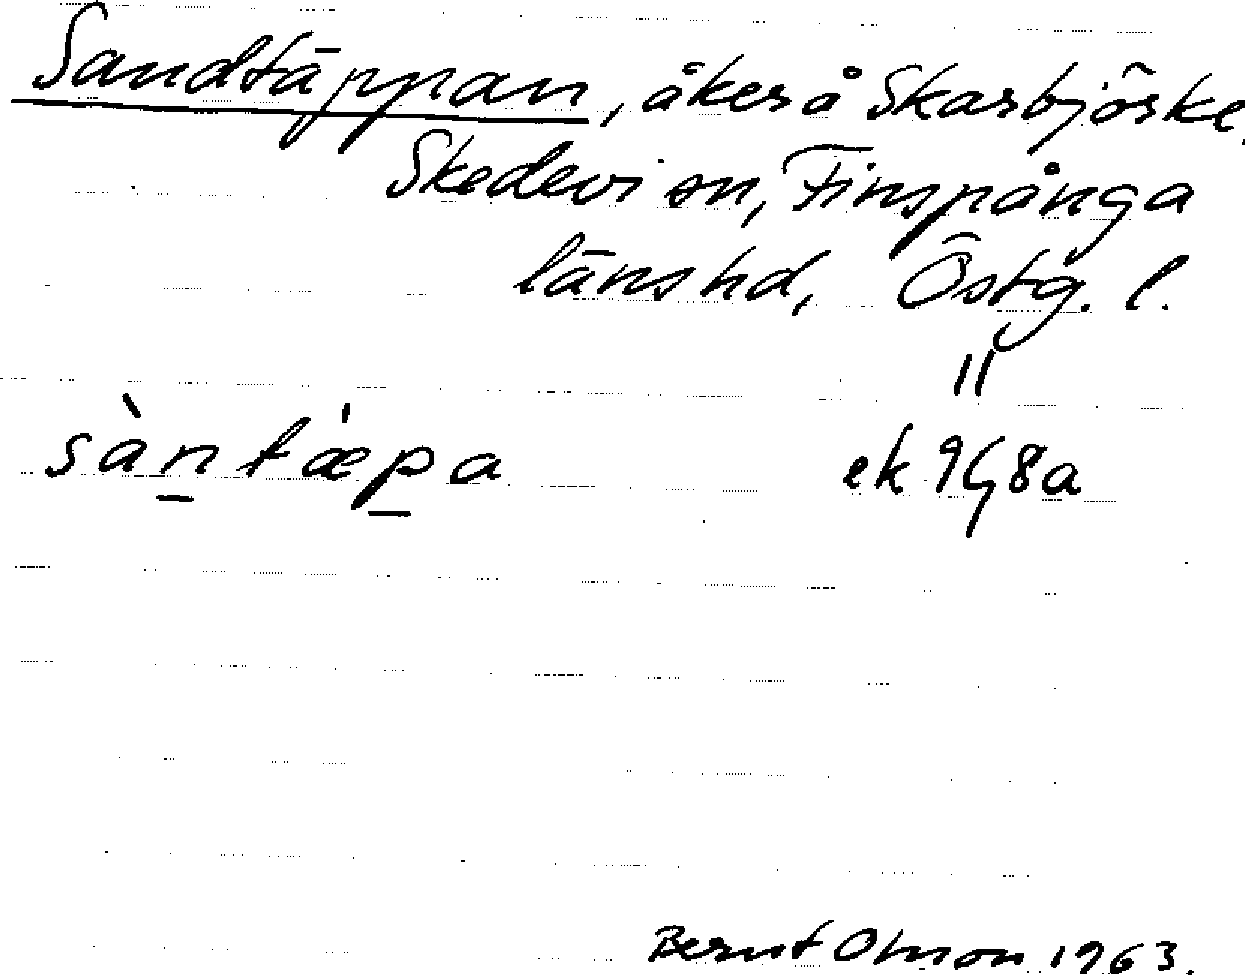 Sandtäppan, åker å Skarbjörke,
Skedevi sn, Finspånga
länshd, Östg. l.
sàntæ̀pa ek 9G8a
Bernt Olsson 1963.